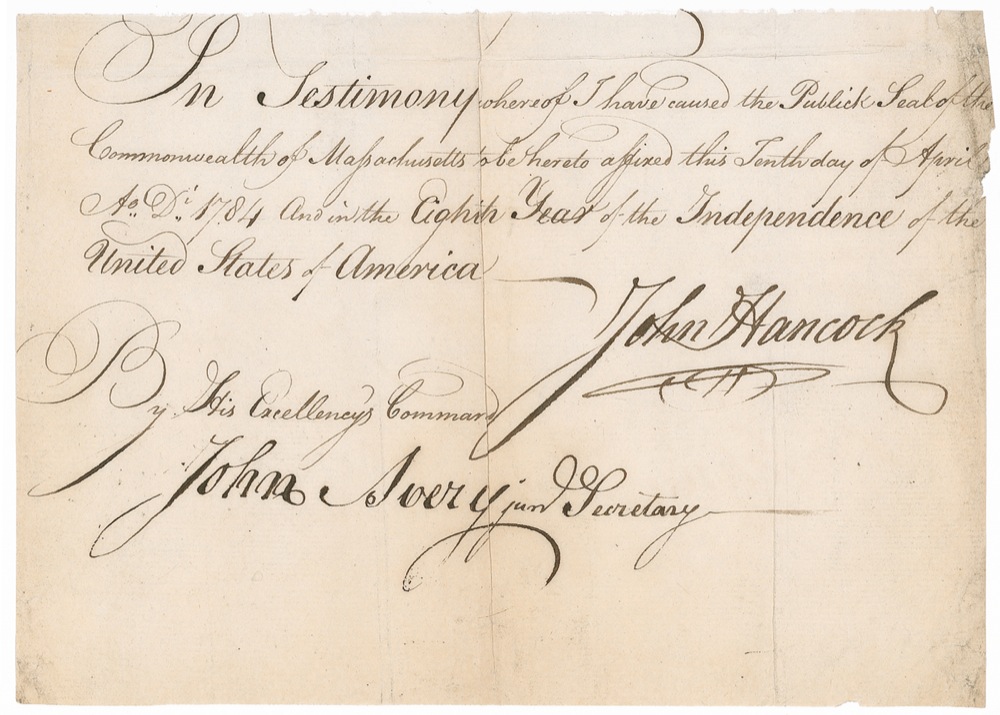 In Testimony whereof I have caused the Publick Seal of the
Commonwealth of Massachusetts to be hereto affixed this Tenth day of April
Ao. Di. 1784 And in the Eighth Year of the Independence of the
United States of America
John Hancock
By His Excellencys Command
John Avery junr Secretary